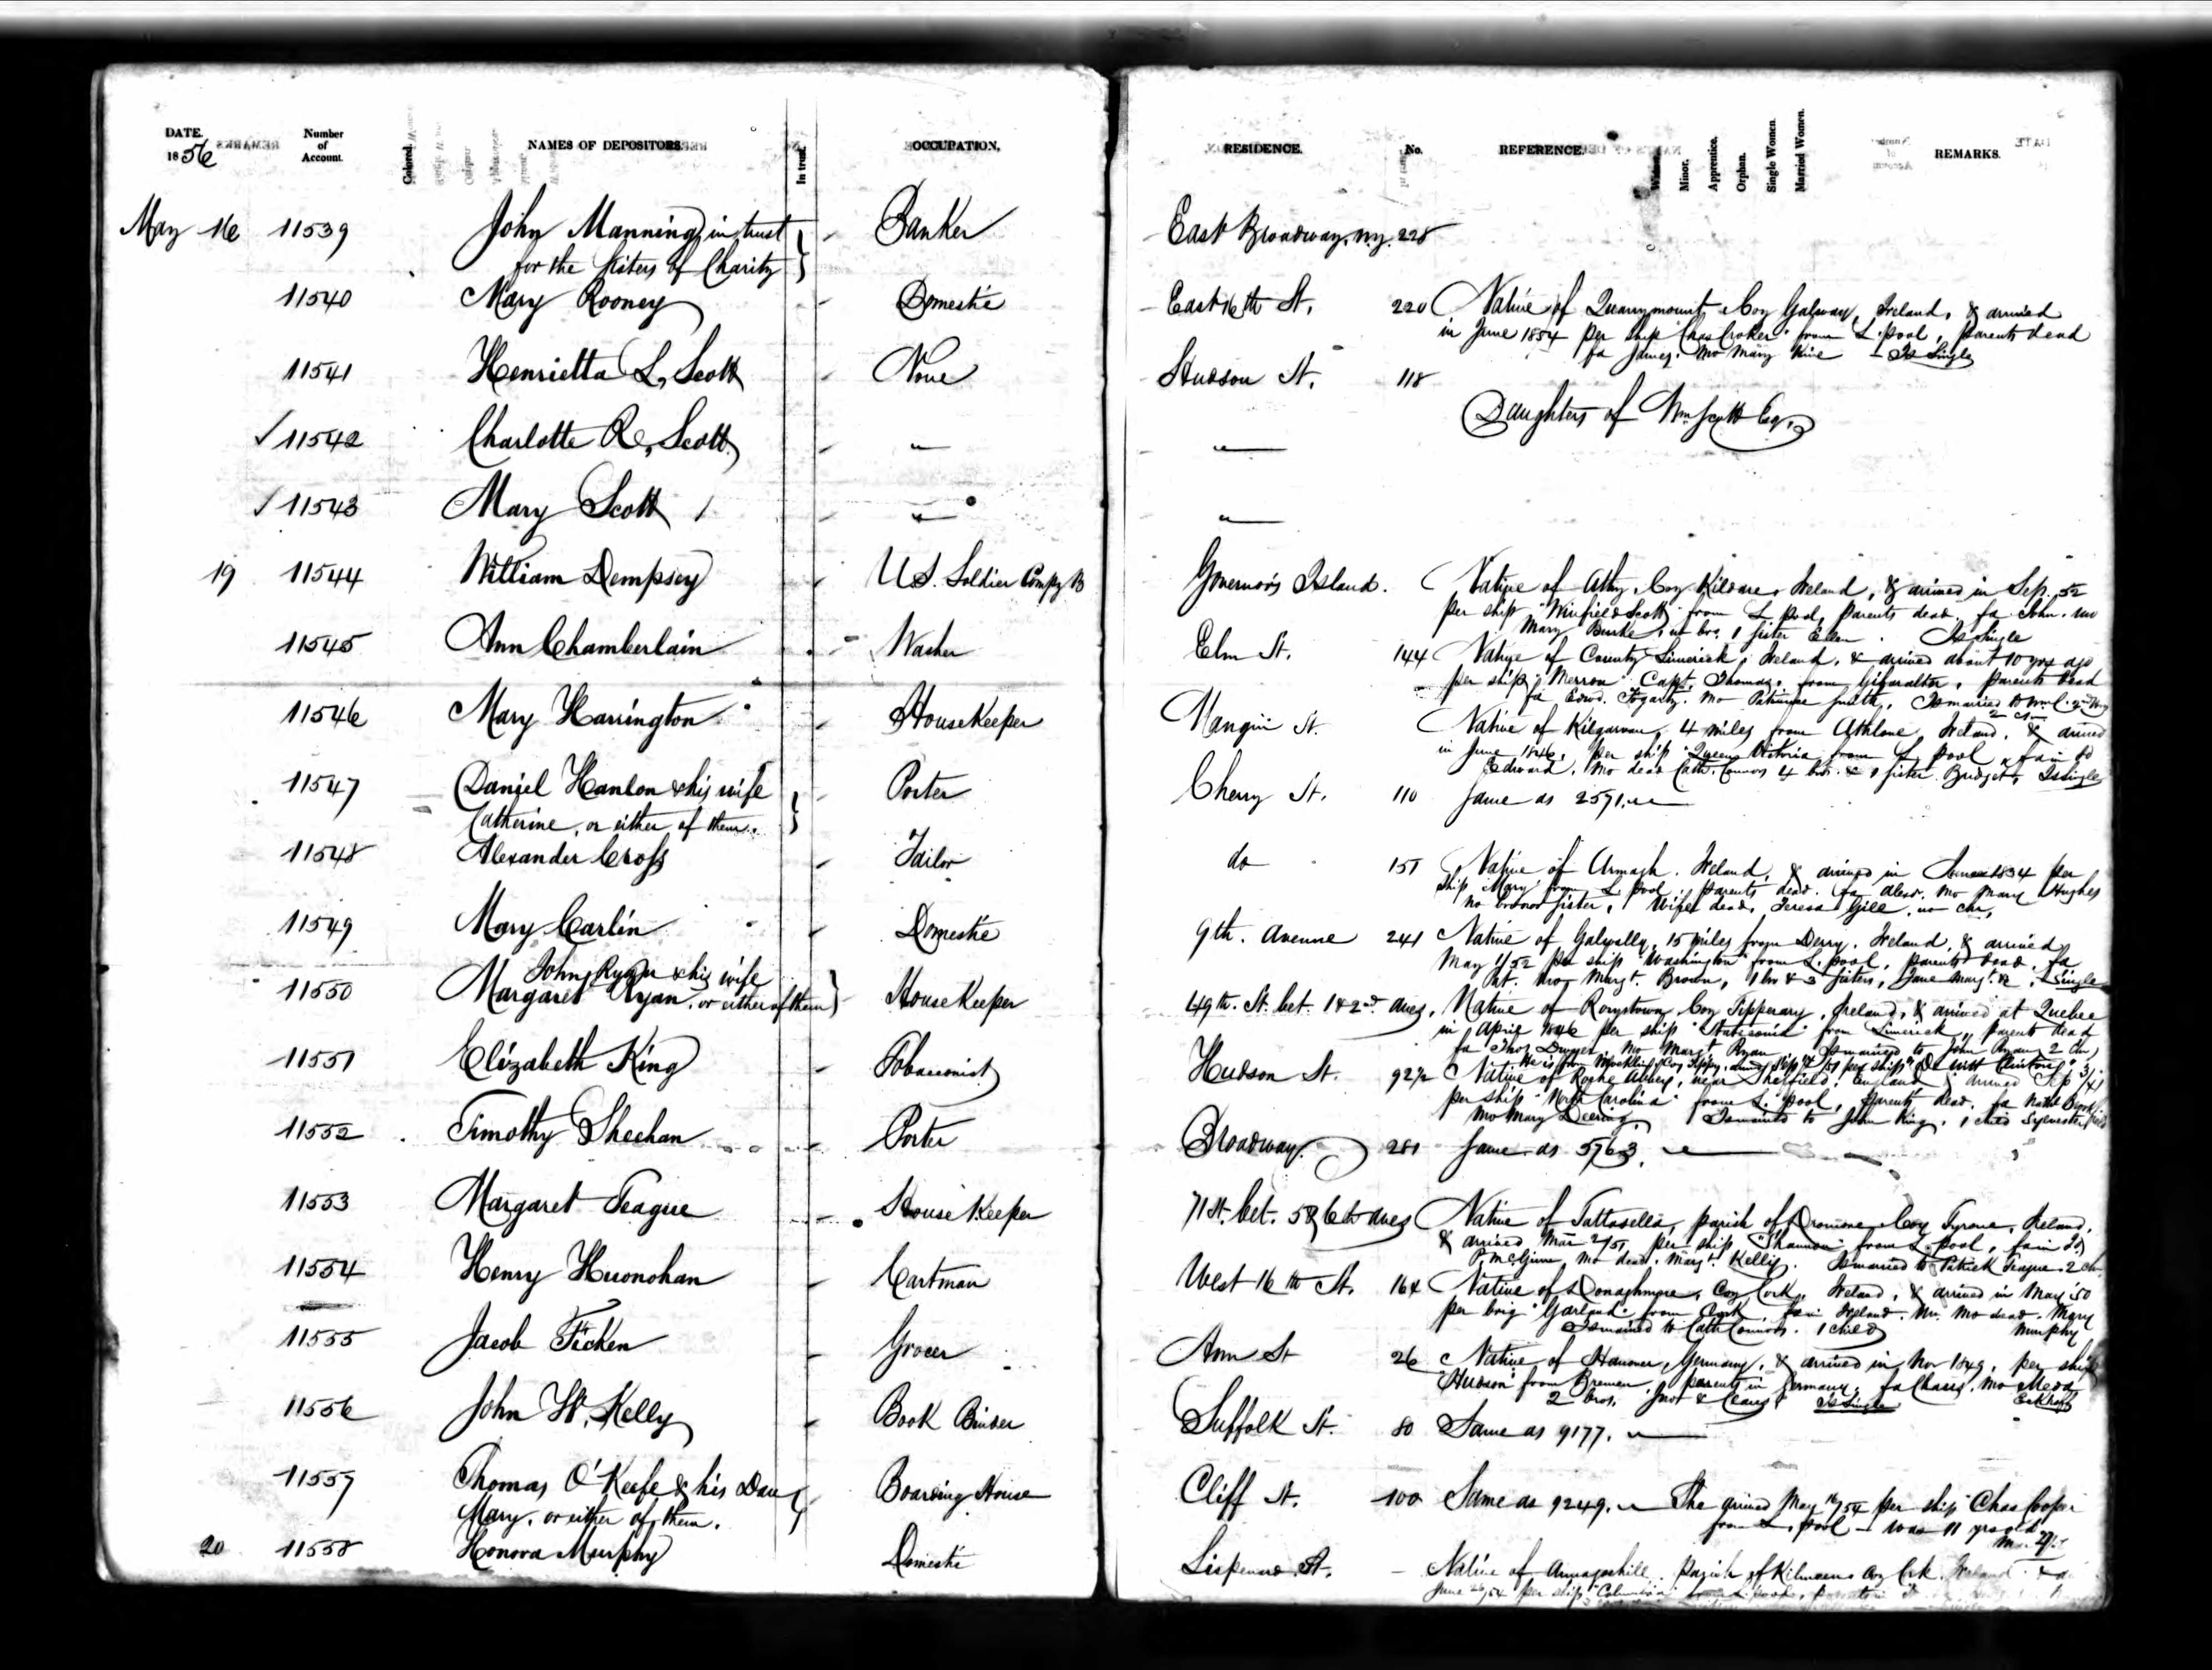 DATE. 1856 Number of Account. Colored. NAMES OF DEPOSITORS. In trust. OCCUPATION.
RESIDENCE. No. REFERENCE. Widow. Minor. Apprentice. Orphan. Single Women. Married Women. REMARKS.
May 16 11539 John Manning, in trust Banker East Broadway, N.Y. 228
for the Sisters of Charity
11540 Mary Rooney Domestic East 16th St. 220 Native of Quarrymount, Coy Galway, Ireland, & arrived
in June 1854 per ship "Chas Croker" from L. pool, parents dead
fa James, mo Mary Kine – Is Single
11541 Henrietta L. Scott None Hudson St. 118
Daughters of Wm Scott Esq.
✓ 11542 Charlotte R. Scott "
✓ 11543 Mary Scott "
19 11544 William Dempsey U.S. Soldier Compy B Governor's Island. Native of Athy, Coy Kildare, Ireland, & arrived in Sep. 52
per ship "Winfield Scott" from L. pool, parents dead. fa John. mo
Mary Burke, no bro. 1 sister Ellen. Is Single
11545 Ann Chamberlain Washer Elm St. 144 Native of County Limerick, Ireland, & arrived about 10 yrs ago
per ship Capt. Thomas, from Gibraltar, parents dead
fa Edwd. Fogarty. mo Smith, Is married to Wm C.
11546 Mary Harrington HouseKeeper Mangin St. Native of Kilgarvan, 4 miles from Athlone, Ireland, & arrived
in June 1846, per ship "Queen Victoria" from L. pool, fa in
Edward, mo dead Cath. Connor 4 bros. & 1 sister Bridget, Is single
11547 Daniel Hanlon & his wife Porter Cherry St. 110 Same as 2571.
Catherine, or either of them.
11548 Alexander Cross Tailor do 151 Native of Armagh, Ireland, & arrived in June 1834 per
ship "Mary" from L. pool, parents dead. fa Alexr. mo Mary Hughes
no bro or sister, Wife dead, Teresa Gill, no chn,
11549 Mary Carlin Domestic 9th. Avenue 241 Native of Galwally, 15 miles from Derry, Ireland, & arrived
May 1/52 per ship "Washington" from L. pool, parents dead, fa
Pat. mo Margt. Brown, 1 bro & 3 sisters, Jane Margt. & , Single
John Ryan & his wife
11550 Margaret Ryan, or either of them HouseKeeper 49th. St. bet. 1 & 2nd aves, Native of Rorystown, Coy Tipperary, Ireland, & arrived at Quebec
in April 1846 per ship from Limerick, parents dead
fa Thos Dwyer mo Margt Ryan Is married to John Ryan, 2 chn,
11551 Elizabeth King Tobacconist Hudson St. 92½ Native of Roche Abbey, near Sheffield, England, & arrived Sep
per ship "North Carolina" from L. pool, parents dead, fa
mo Mary Deering, Is married to John King, 1 child Sylvester
11552 Timothy Sheehan Porter Broadway 281 Same as 5763.
11553 Margaret Teague House Keeper 71 St. bet. 5 & 6th aves Native of Tattasella, parish of Dromore, Coy Tyrone, Ireland,
& arrived Mar 2/51 per ship "Shannon" from L. pool, fa in
P. McGinn, mo dead, Margt. Kelly. Is married to Patrick Teague 2 ch
11554 Henry Huonohan Cartman West 16th St. 164 Native of Donaghmore, Coy Cork, Ireland, & arrived in May '50
per brig "Garland" from Cork, fa in Ireland. mo dead. Mary
Is married to Cath Connors. 1 child Murphy
11555 Jacob Ficken Grocer Ann St 26 Native of Hanover, Germany, & arrived in Nov 1849, per ship
"Hudson" from Bremen, parents in Germany, fa Claus, mo Meta
2 bros. & Claus Is Single
11556 John W. Kelly Book Binder Suffolk St. 80 Same as 9177.
11557 Thomas O'Keefe & his Dau Boarding House Cliff St. 100 Same as 9249. She arrived May 16/54 per ship Chas Cooper
Mary, or either of them. from L. pool – was 11 yrs old
20 11558 Honora Murphy Domestic Lispenard St. – Native of Parish of Kilmeen Coy Cork, Ireland
June 26/54 per ship "Columbia" from L. pool,